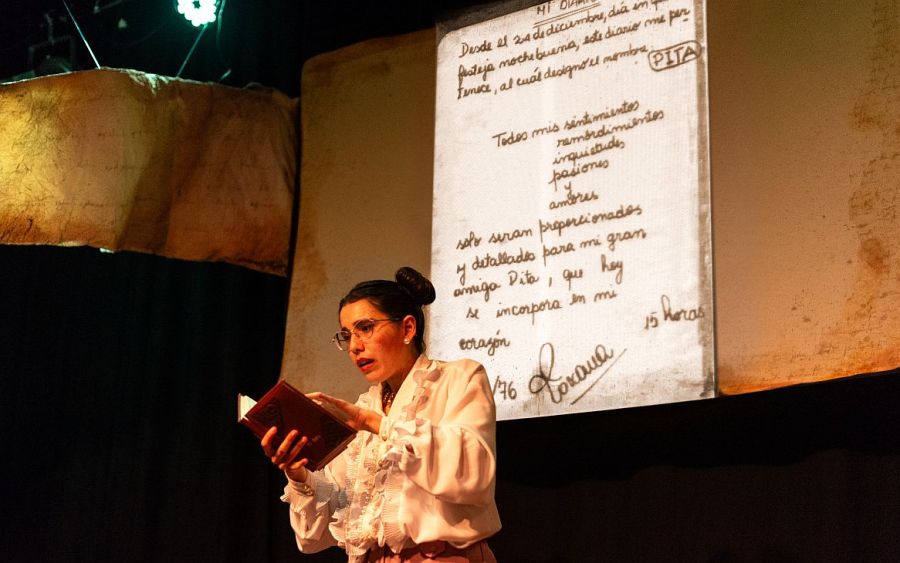 MI DIARIO
Desde el 24 de diciembre, día en que
festeja nochebuena, este diario me per-
tenece, al cuál designo el nombre, PITA
Todos mis sentimientos
remordimientos
inquietudes
pasiones
y
amores
solo seran proporcionados
y detallados para mi gran
amiga Dita, que hoy
se incorpora en mi
corazón
15 horas
/76